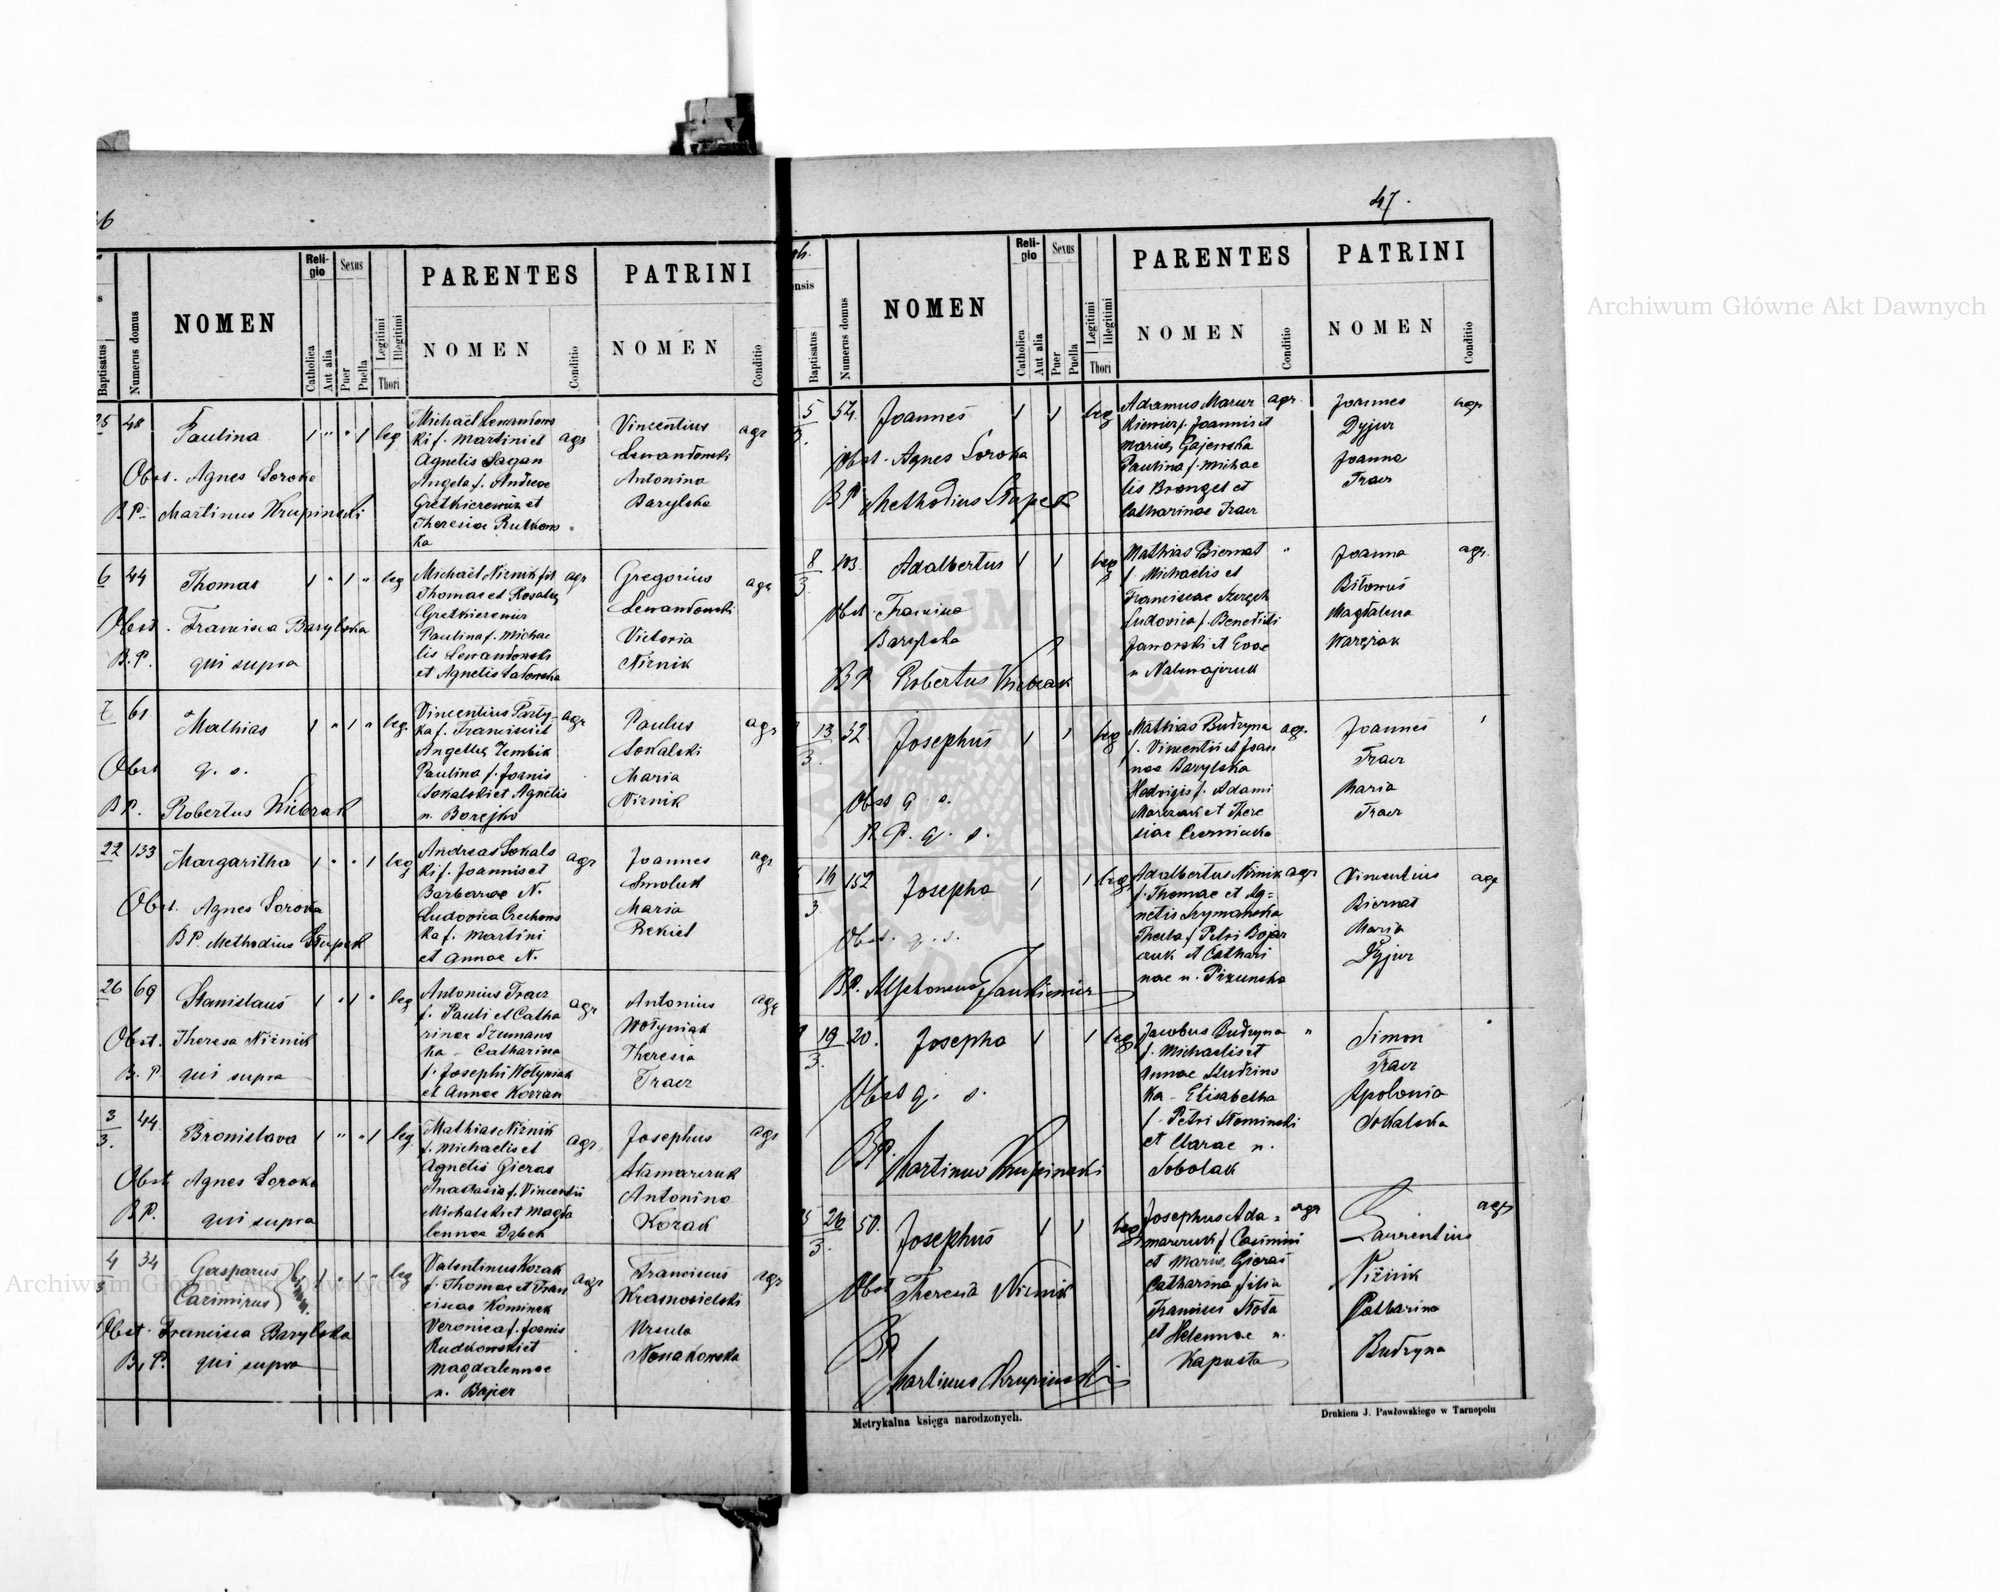 47.
NOMEN
Religio
Sexus
Baptisatus
Numerus domus
Catholica
Aut alia
Puer
Puella
Legitimi
Illegitimi
Thori
PARENTES
NOMEN
Conditio
PATRINI
NOMEN
Conditio
25 48 Paulina 1 " " 1 leg
Obst. Agnes Soroka
B.P. Martinus Krupinski
Michaël Lewandows
ki f. Martini et
Agnetis Sagan
Angela f. Andreae
Gretkierewicz et
Theresiae Rutkows
ka
agr
Vincentius
Lewandowski
Antonina
Barylska
agr
6 44 Thomas 1 " 1 " leg
Obst. Francisca Barylska
B.P. qui supra
Michaël Niznik fil
Thomae et Rosaliae
Gretkierewicz
Paulina f. Michae
lis Lewandowski
et Agnetis
agr
Gregorius
Lewandowski
Victoria
Niznik
agr
7 61 Mathias 1 " 1 " leg.
Obst q. s.
B.P. Robertus
Vincentius Party-
ka f. Francisci et
Angelae Zembik
Paulina f. Joanis
Sokalski et Agnetis
n. Borejko
agr
Paulus
Sokalski
Maria
Niznik
agr
22 133 Margaritha 1 " " 1 leg
Obst. Agnes Soroka
B.P. Methodius
Andreas Sokals
ki f. Joannis et
Barbarae N.
Ludovica
ka f. Martini
et Annae N.
agr
Joannes
Smoluk
Maria
Rekiel
agr
26 69 Stanislaus 1 " 1 " leg
Obst. Theresa Niznik
B.P. qui supra
Antonius Tracz
f. Pauli et Catha
rinae Szumans
ka - Catharina
f. Josephi Wołyniak
et Annae
agr
Antonius
Wołyniak
Theresia
Tracz
agr
3 44. Bronislava 1 " " 1 leg.
3.
Obst Agnes Soroka
B.P. qui supra
Mathias Niznik
f. Michaelis et
Agnetis Gieras
Anastasia f. Vincentii
Michalski et Magda
lennae Dąbek
agr.
Josephus
Antonina
Kozak
agr
4 34 Gasparus
Casimirus 1 " 1 " leg
Obst. Francisca Barylska
B.P. qui supra
Valentinus Kozak
f. Thomae et Fran
ciscae Kominek
Veronica f. Joanis
Rudkowski et
Magdalennae
n. Bajer
agr
Franciscus
Krasnosielski
Ursula
Nowakowska
agr
NOMEN
Religio
Sexus
Baptisatus
Numerus domus
Catholica
Aut alia
Puer
Puella
Legitimi
Illegitimi
Thori
PARENTES
NOMEN
Conditio
PATRINI
NOMEN
Conditio
5 54. Joannes 1 1 leg
3.
Obst. Agnes Soroka
B.P. Methodius
Adamus Mazur
kiewicz f. Joannis et
Mariae Gajewska
Paulina f. Michae
lis Brongel et
Catharinae Tracz
agr.
Joannes
Dyjur
Joanna
Tracz
agr
8 103. Adalbertus 1 1 leg
3.
Obst. Francisca
Barylska
B.P. Robertus
Mathias Biernat
f. Michaelis et
Franciscae
Ludovica f. Benedicti
Jaworski et Evae
n
"
Joanna
Magdalena
agr.
13 52. Josephus 1 1 leg
3.
Obst q. s.
B.P. q. s.
Mathias Budzyna
f. Vincentii et Joan
nae Barylska
Hedvigis f. Adami
et There
siae Czerniacka
agr.
Joannes
Tracz
Maria
Tracz
16 152 Josepha 1 1 leg
3
Obst. q. s.
B.P. Alphonsus
Adalbertus Niznik
f. Thomae et Ag=
netis Szymańska
Thecla f. Petri Bojar
czuk et Cathari
nae n.
agr
Vincentius
Biernat
Maria
Dyjur
agr
19 20. Josepha 1 1 leg
3.
Obst q. s.
B.P. Martinus Krupinski
Jacobus Budzyna
f. Michaelis et
Annae
ka - Elisabetha
f. Petri Słominski
et Clarae n.
Sobolak
"
Simon
Tracz
Apolonia
Sokalska
26 50. Josephus 1 1 leg
3.
Obst Theresia Niznik
B.P.
Martinus Krupinski
Josephus Ada=
marczuk f. Casimiri
et Mariae Gieras
Catharina filia
Francisci
et Helennae n.
Kapusta
agr
Laurentius
Niznik
Catharina
Budzyna
agr
Metrykalna księga narodzonych.
Drukiem J. Pawłowskiego w Tarnopolu
Archiwum Główne Akt Dawnych
Archiwum Główne Akt Dawnych